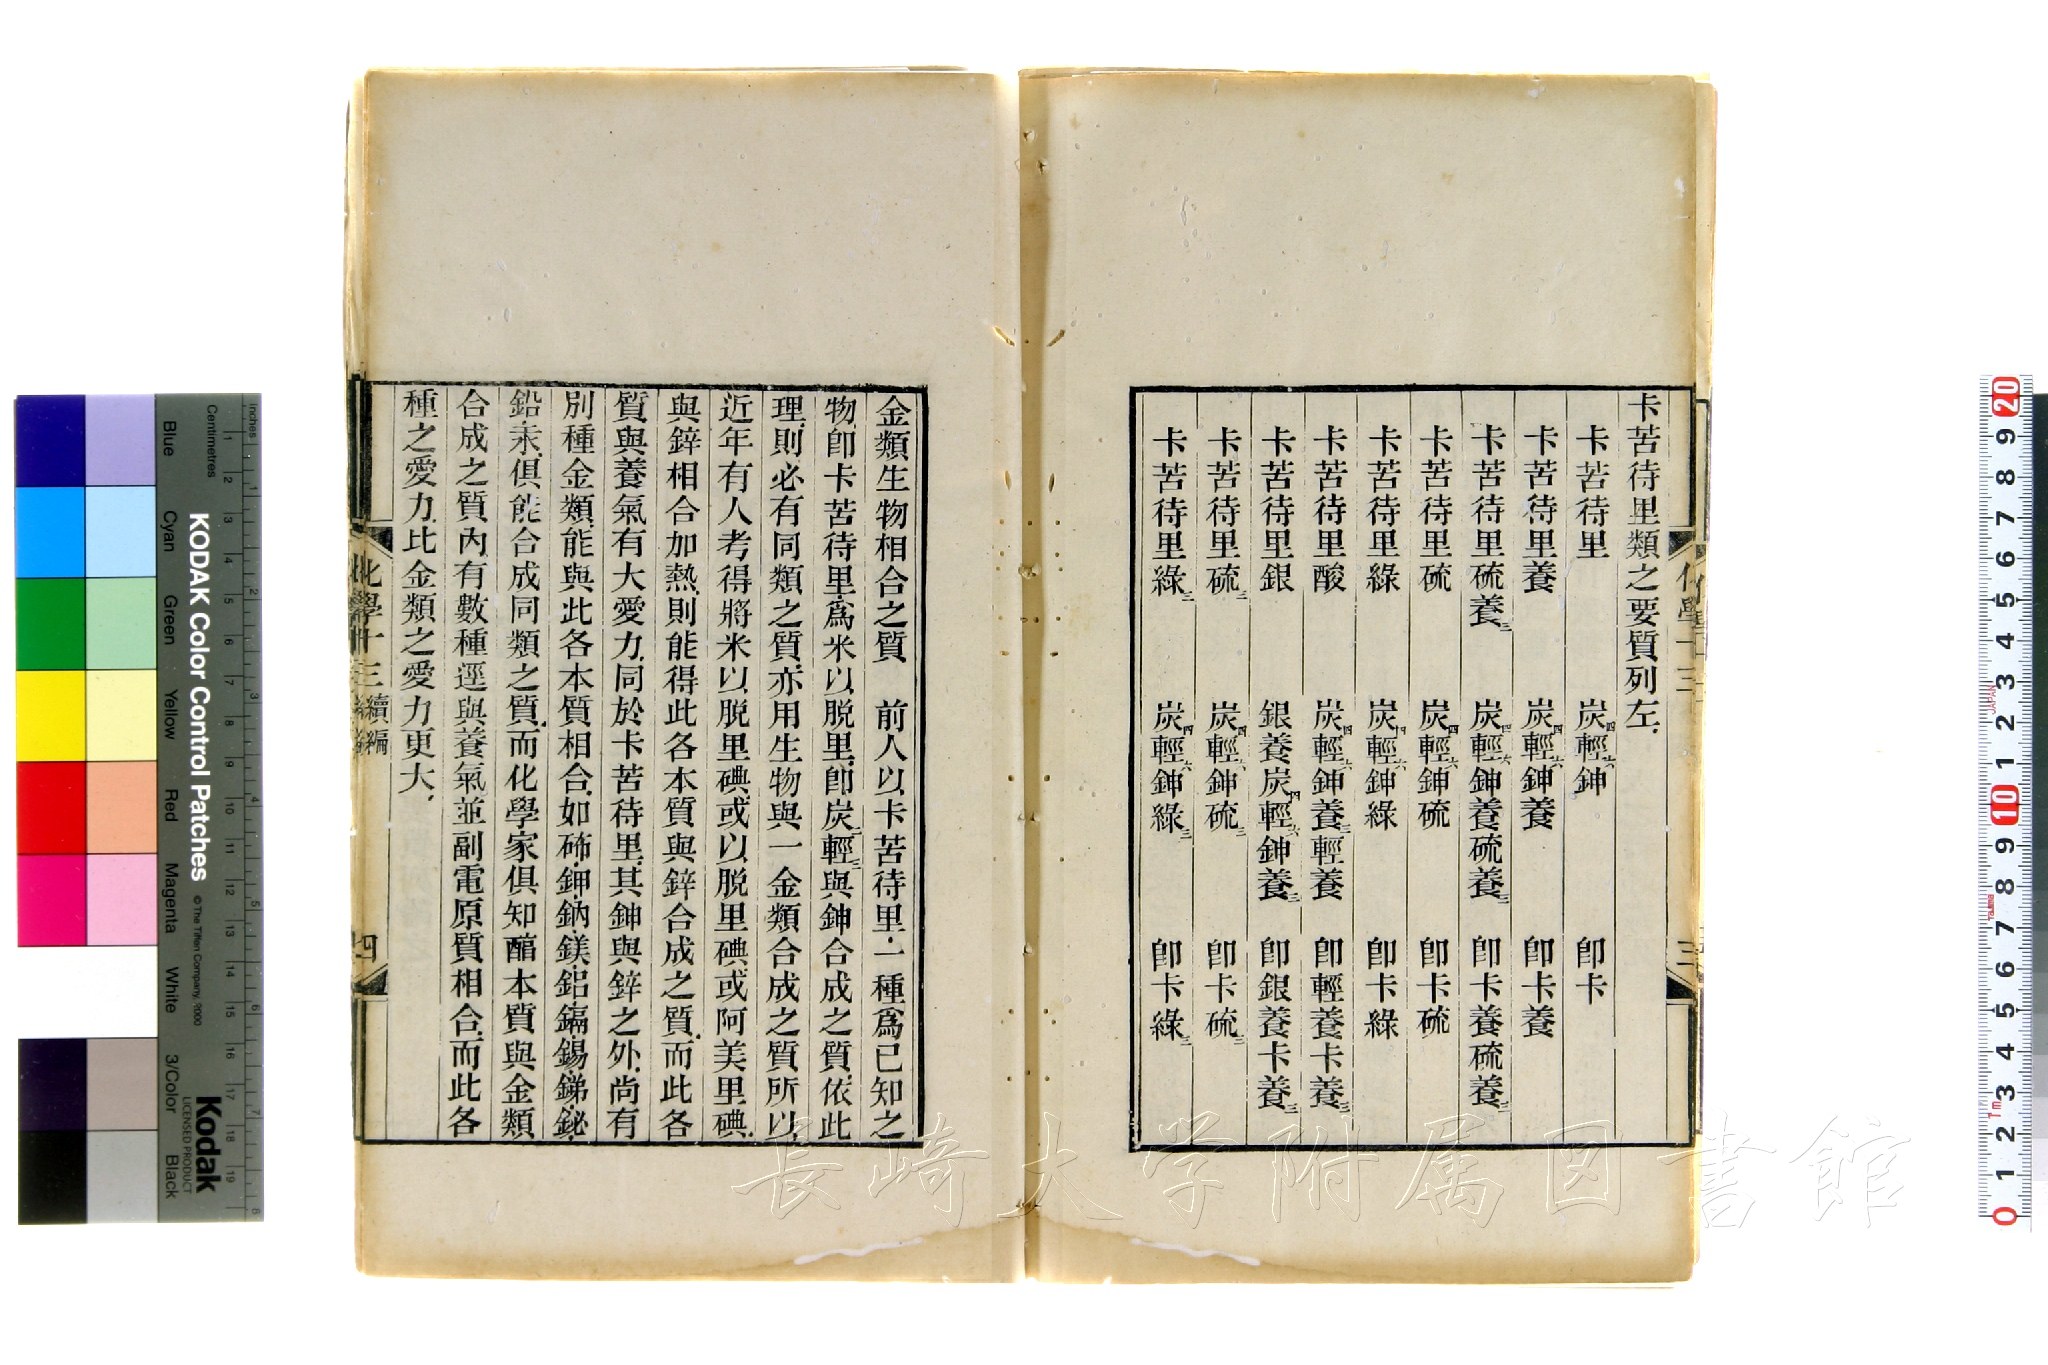 卡苦待里類之要質列左
卡苦待里 炭四輕六鉮 卽卡
卡苦待里養 炭四輕六鉮養 卽卡養
卡苦待里硫養三 炭四輕六鉮養硫養三 卽卡養硫養三
卡苦待里硫 炭四輕六鉮硫 卽卡硫
卡苦待里綠 炭四輕六鉮綠 卽卡綠
卡苦待里酸 炭四輕六鉮養三輕養 卽輕養卡養三
卡苦待里銀 銀養炭四輕六鉮養三 卽銀養卡養三
卡苦待里硫三 炭四輕六鉮硫三 卽卡硫三
卡苦待里綠三 炭四輕六鉮綠三 卽卡綠三
三
金類生物相合之質 前人以卡苦待里一種爲已知之
物卽卡苦待里爲米以脱里卽炭二輕三與鉮合成之質依此
理則必有同類之質亦用生物與一金類合成之質所以
近年有人考得將米以脱里碘或以脱里碘或阿美里碘
與鋅相合加熱則能得此各本質與鋅合成之質而此各
質與養氣有大愛力同於卡苦待里其鉮與鋅之外尚有
別種金類能與此各本質相合如鉮鉀鈉鎂鋁鎘錫銻鉍
鉛汞俱能合成同類之質而化學家俱知醕本質與金類
合成之質內有數種逕與養氣並副電原質相合而此各
種之愛力比金類之愛力更大
續編
四
KODAK Color Control Patches
© The Tiffen Company, 2000
Kodak
LICENSED PRODUCT
Inches
Centimetres
Blue
Cyan
Green
Yellow
Red
Magenta
White
3/Color
Black
長崎大学附属図書館